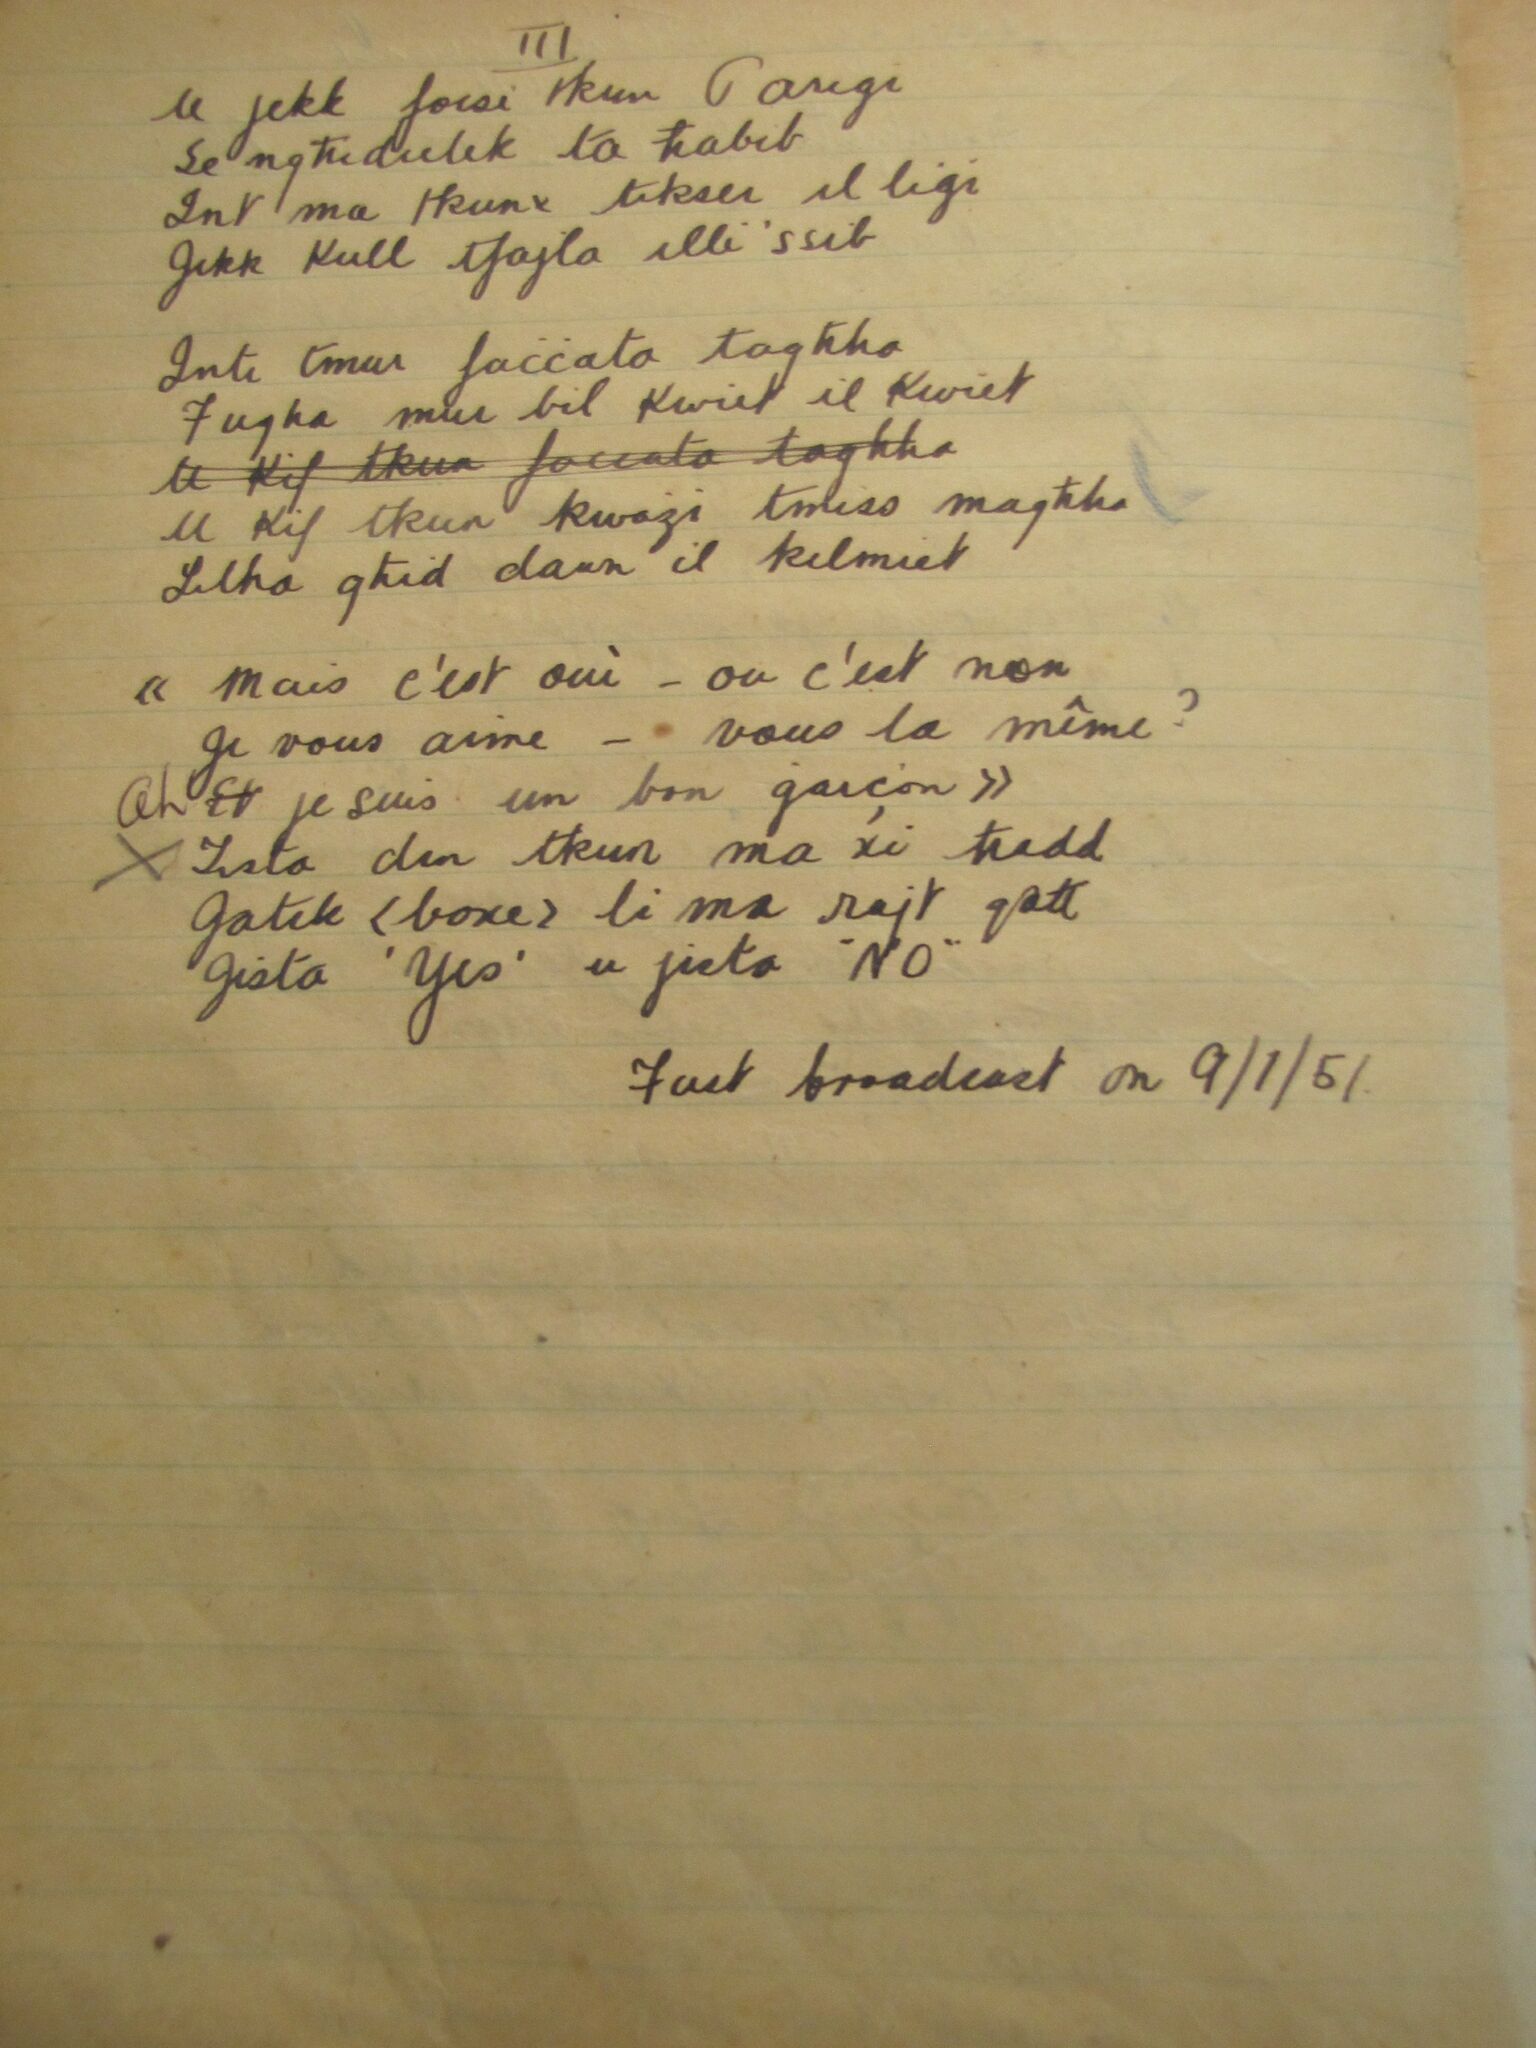 III
U jekk forsi tkun Parigi
Se ngħidulek ta ħabib
Int ma tkunx tikser il liġi
Jekk kull tfajla illi 'ssib
Inti tmur faċċata tagħha
Fuqha mur bil kwiet il kwiet
U kif tkun faccata tagħha
U kif tkun kważi tmiss magħha
Lilha għid dawn il kelmiet
« Mais c'est oui - ou c'est non
Je vous aime - vous la même?
Ah Et je suis un bon garçon »
X Ista din tkun ma xi ħadd
Ġatek <boxe> li ma rajt qatt
Jista 'Yes' u jista "NO"
First broadcast on 9/1/51.